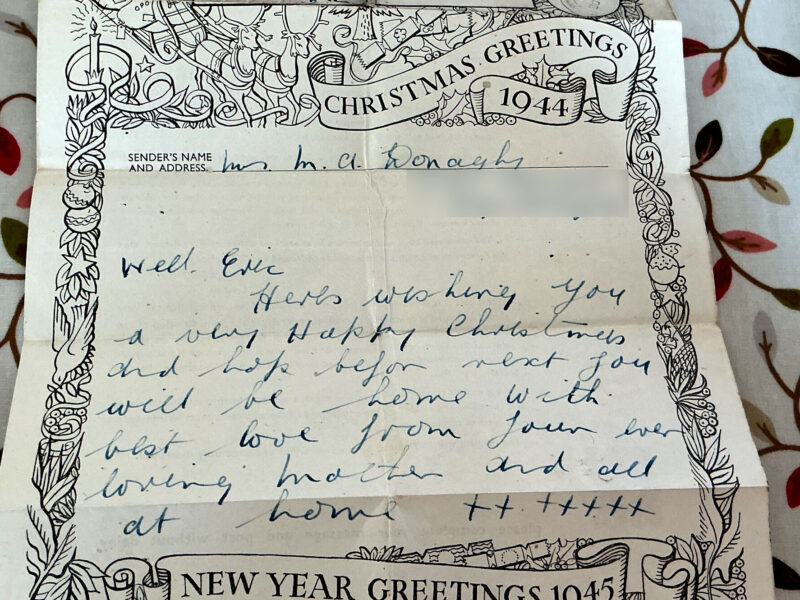 CHRISTMAS GREETINGS
1944
SENDER'S NAME
AND ADDRESS. Mrs. M. A. Donaghy
Well. Eric
Heres wishing you
a very Happy Christmas
and hop befor next you
will be home with
best love from your ever
loving mother and all
at home ++ +++++
NEW YEAR GREETINGS 1945